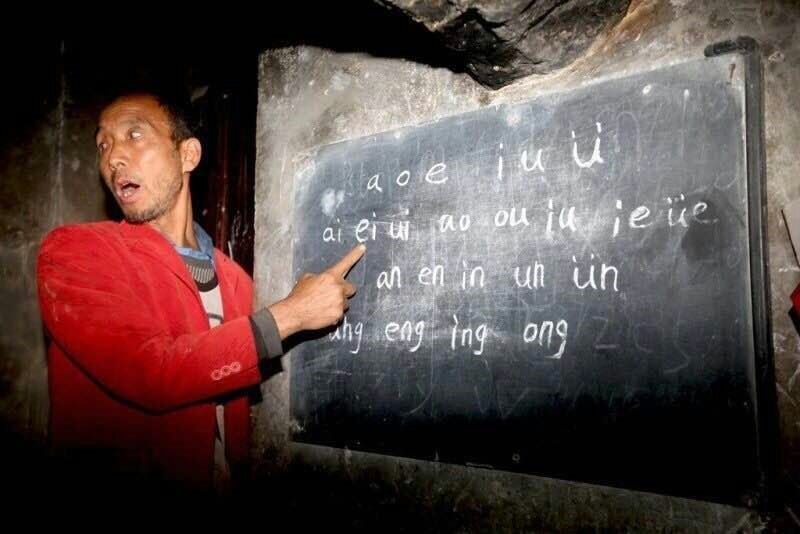 a o e i u ü
ai ei ui ao ou iu ie üe
an en in un ün
ang eng ing ong